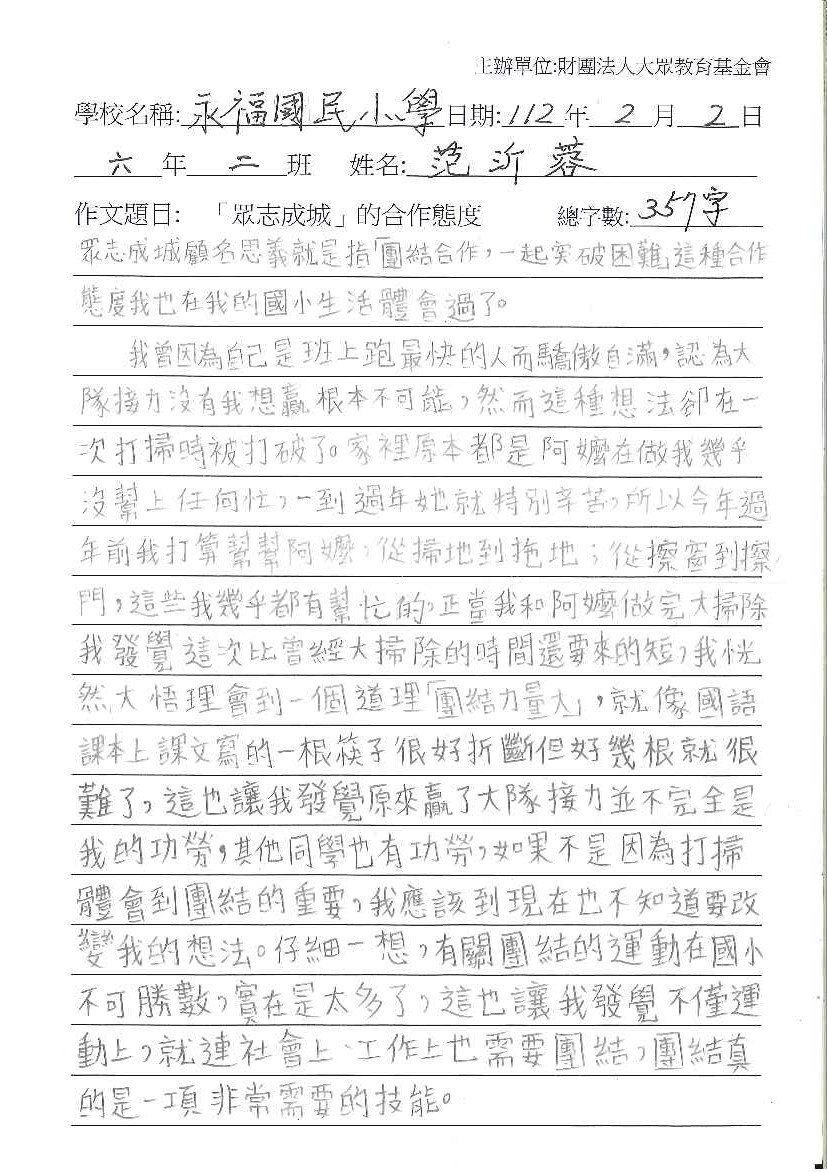 主辦單位:財團法人大眾教育基金會
學校名稱:永福國民小學日期:112年2月2日
六年二班 姓名:范沂蓉
作文題目:「眾志成城」的合作態度 總字數:357字
眾志成城顧名思義就是指「團結合作,一起突破困難」這種合作
態度我也在我的國小生活體會過了。
我曾因為自己是班上跑最快的人而驕傲自滿,認為大
隊接力沒有我想贏根本不可能,然而這種想法卻在一
次打掃時被打破了。家裡原本都是阿嬤在做我幾乎
沒幫上任何忙,一到過年她就特別辛苦,所以今年過
年前我打算幫幫阿嬤,從掃地到拖地;從擦窗到擦
門,這些我幾乎都有幫忙的,正當我和阿嬤做完大掃除
我發覺這次比曾經大掃除的時間還要來的短,我恍
然大悟理會到一個道理「團結力量大」,就像國語
課本上課文寫的一根筷子很好折斷但好幾根就很
難了,這也讓我發覺原來贏了大隊接力並不完全是
我的功勞,其他同學也有功勞,如果不是因為打掃
體會到團結的重要,我應該到現在也不知道要改
變我的想法。仔細一想,有關團結的運動在國小
不可勝數,實在是太多了,這也讓我發覺不僅運
動上,就連社會上、工作上也需要團結,團結真
的是一項非常需要的技能。